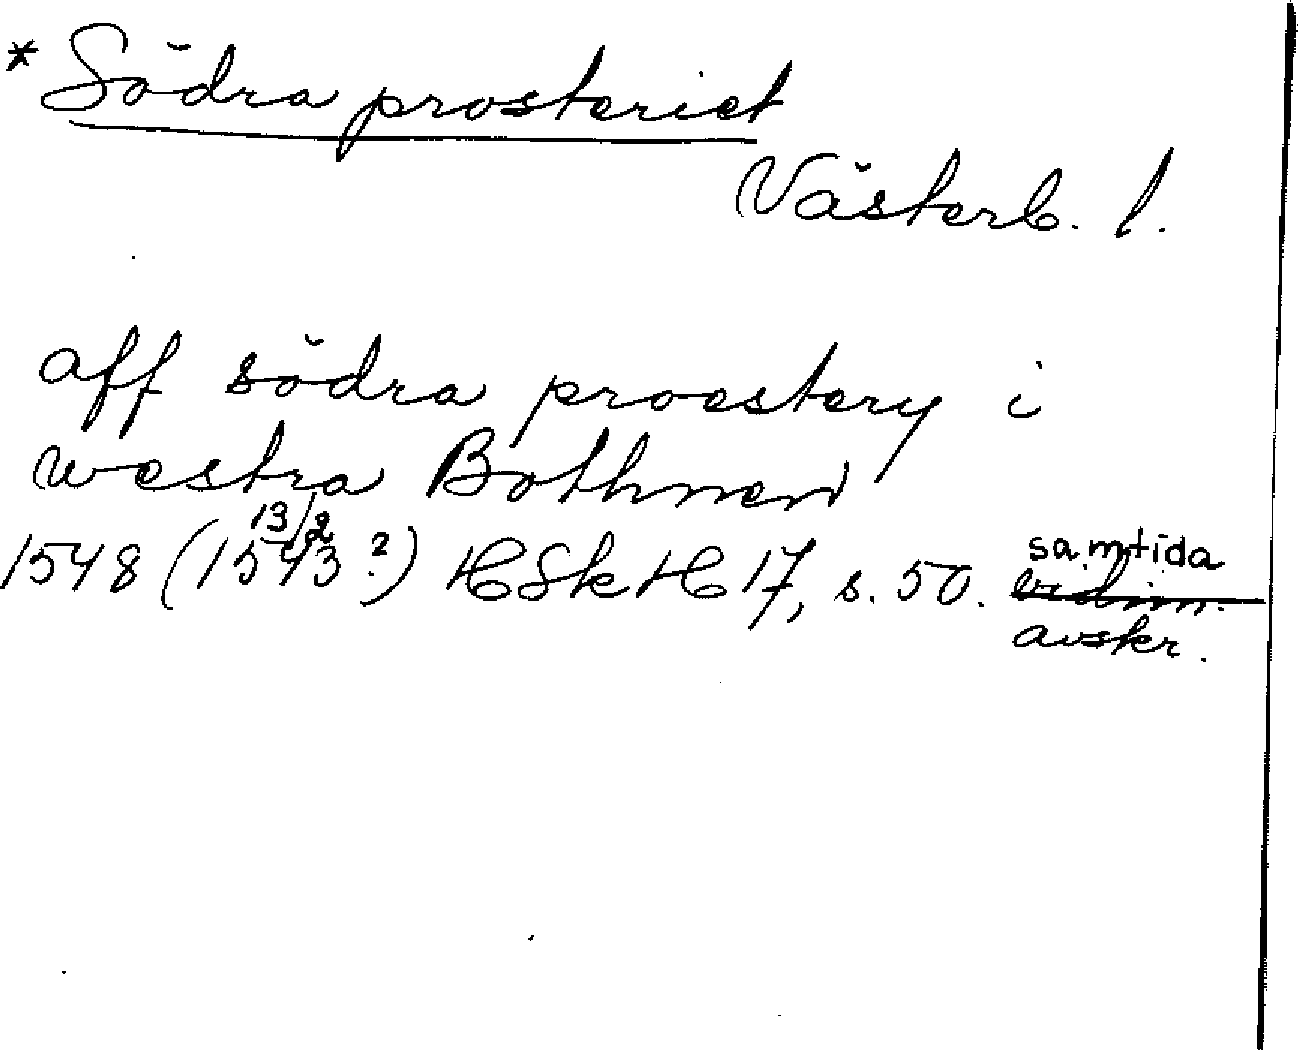 * Södra prosteriet
Västerb. l.
aff södra proestery i
westra Bothnen
13/2
1548 (1543?) HSkH 17, s. 50. samtida
vidim.
avskr.